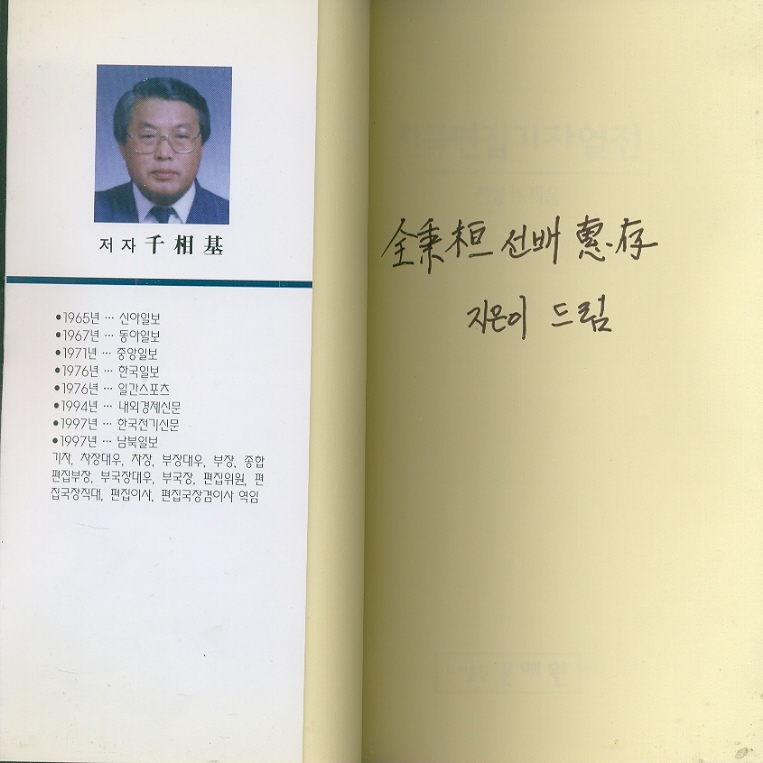 저자 千相基
●1965년 … 신아일보
●1967년 … 동아일보
●1971년 … 중앙일보
●1976년 … 한국일보
●1976년 … 일간스포츠
●1994년 … 내외경제신문
●1997년 … 한국전기신문
●1997년 … 남북일보
기자, 차장대우, 차장, 부장대우, 부장, 종합
편집부장, 부국장대우, 부국장, 편집위원, 편
집국장직대, 편집이사, 편집국장겸이사 역임
全秉桓 선배 惠存
지은이 드림